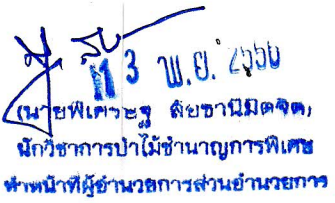 13 พ.ย. 2550
(นายพิเศรษฐ
นักวิชาการป่าไม้ชำนาญการพิเศษ
ทำหน้าที่ผู้อำนวยการส่วนอำนวยการ